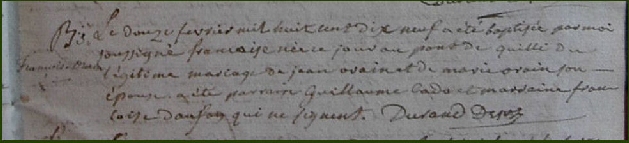 Bs. Le douze fevrier mil huit cent dix neuf a été baptisée par moi
soussigné francoise née ce jour au pont de quille du
légitime mariage de jean orain et de marie orain son
épouse a été parrain Guillaume Cado et marraine fran
coise danson qui ne signent. Durand